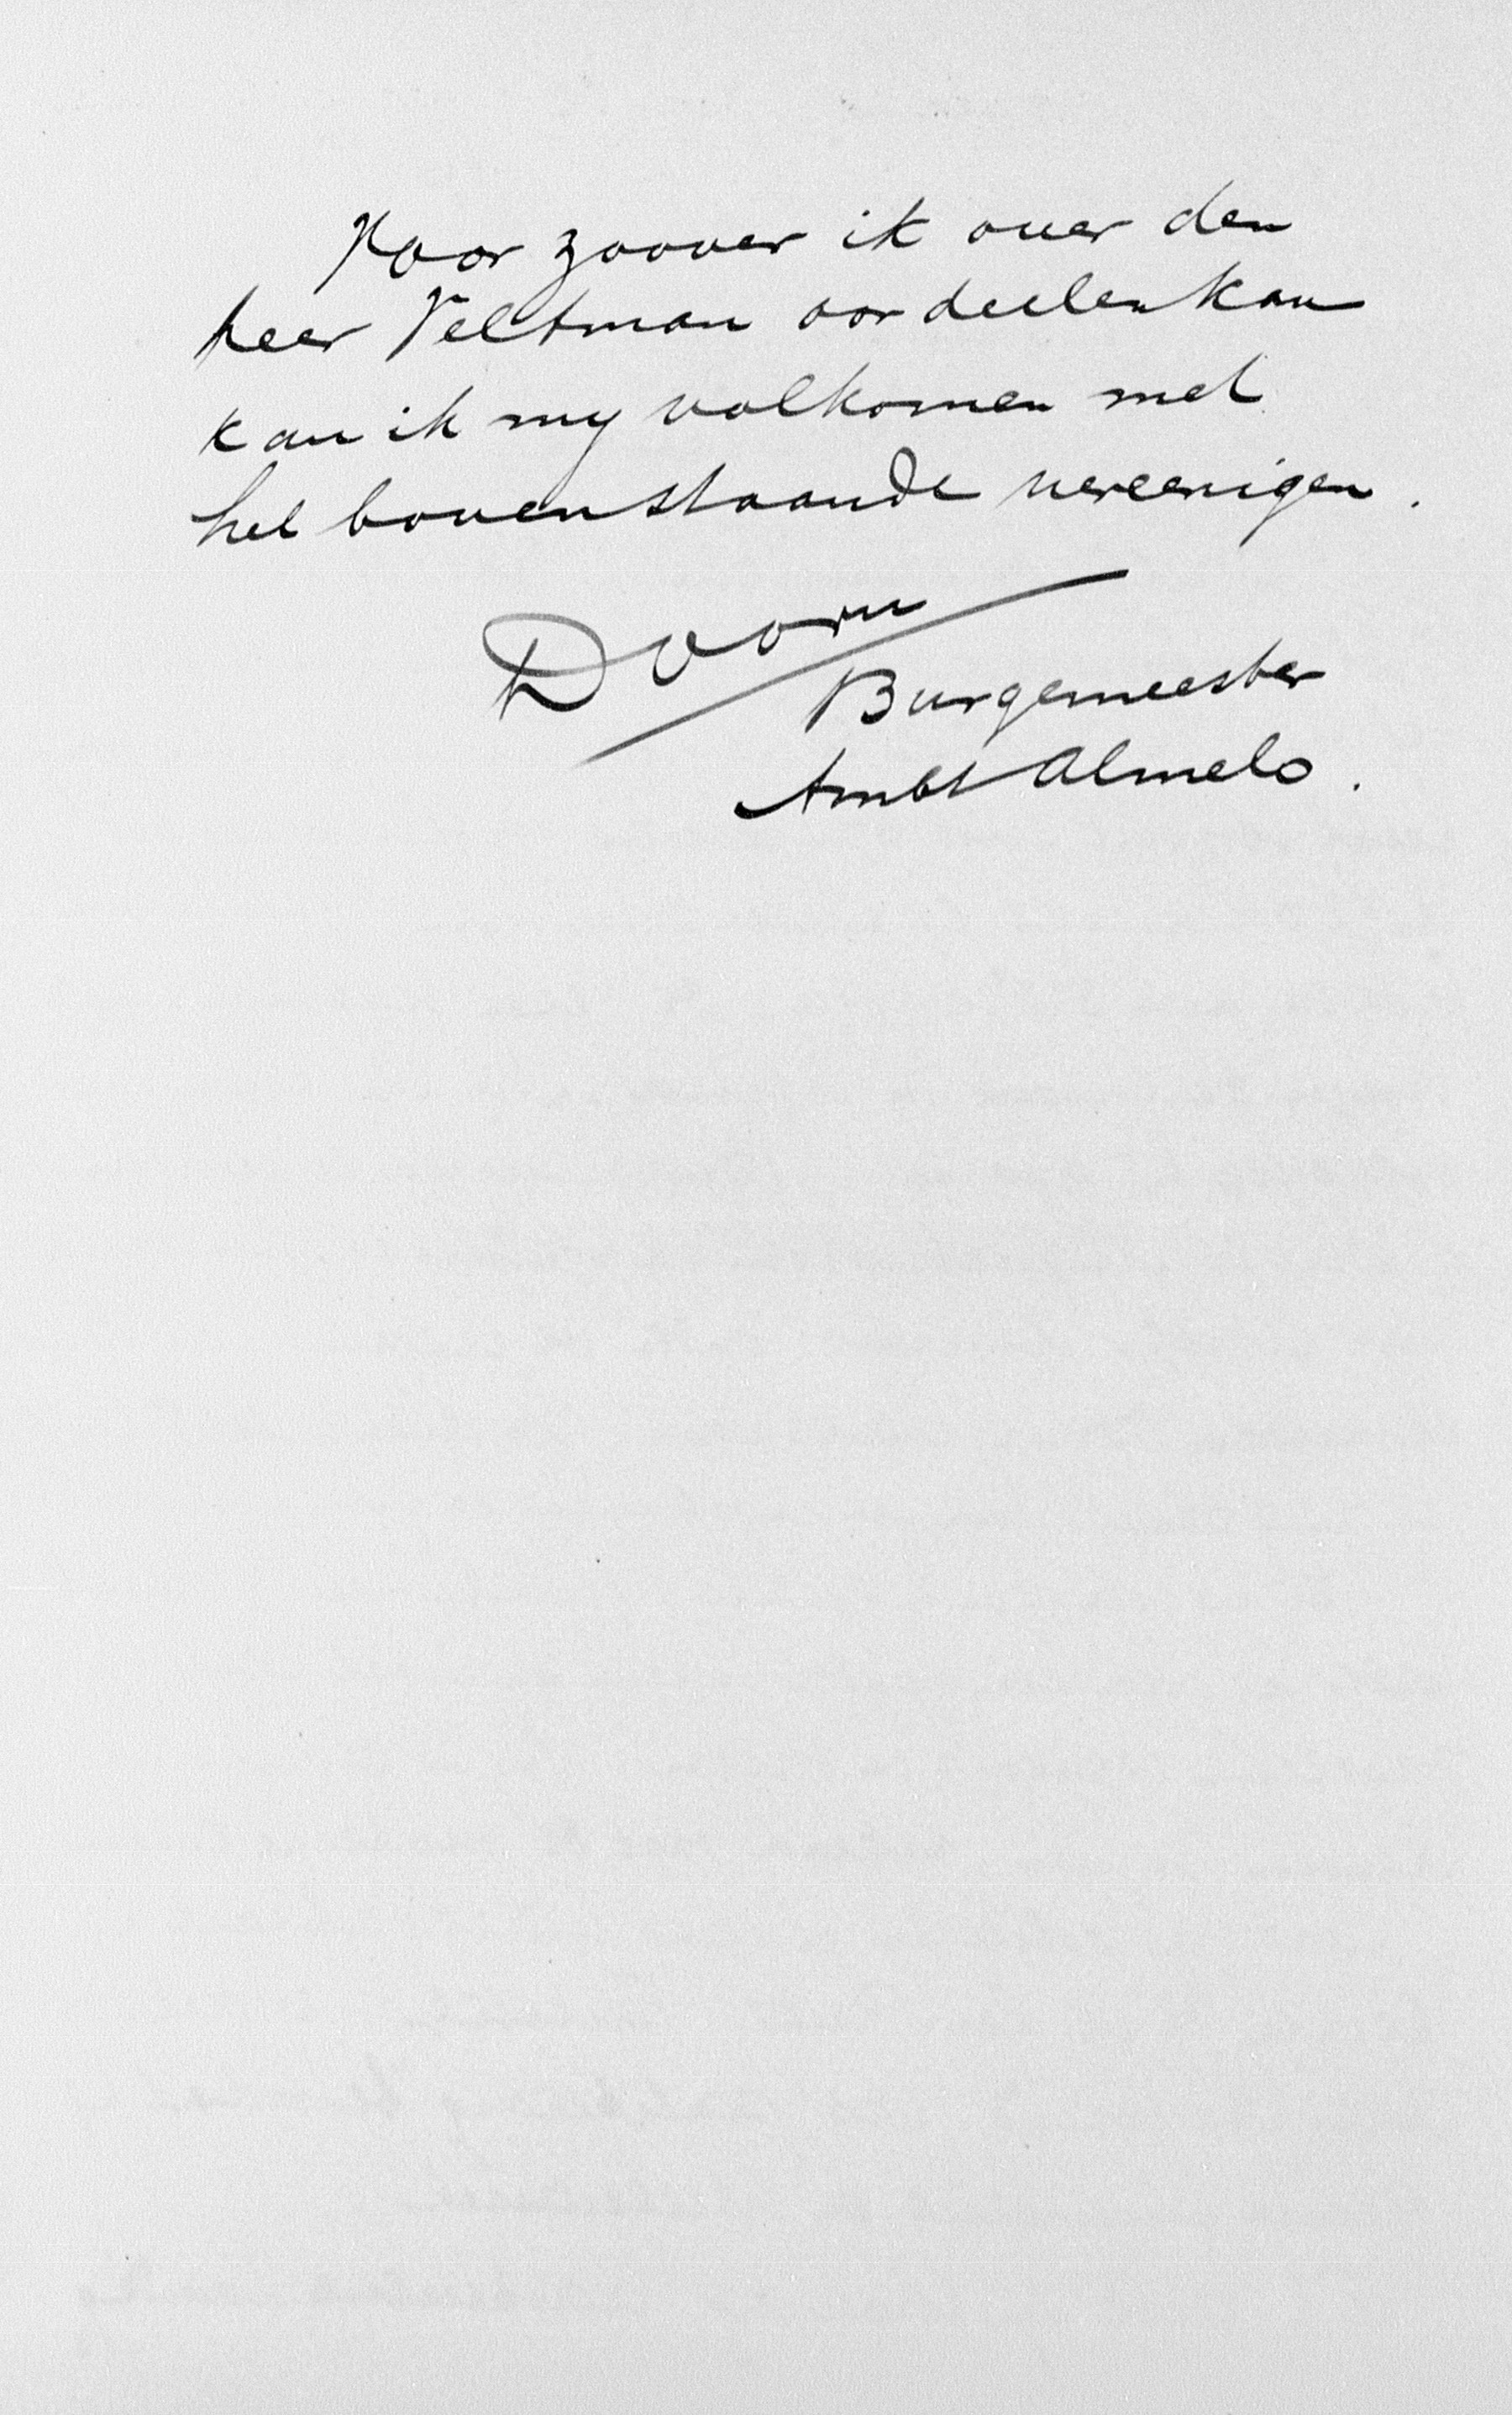 Voor zoover ik over den
heer Veltman oordeelen kan
kan ik my volkomen met
het bovenstaande vereenigen.
Doorn
Burgemeester
Ambt Almelo.